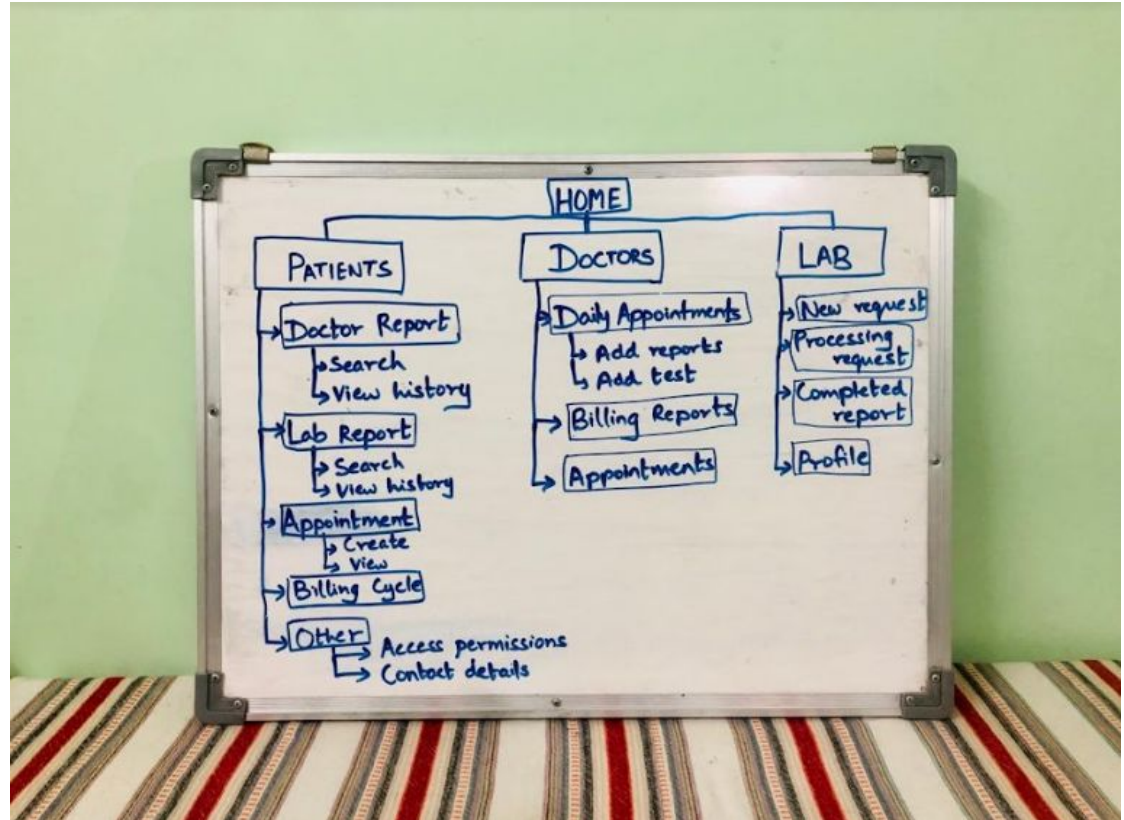 HOME
PATIENTS
Doctor Report
Search
View history
Lab Report
Search
View history
Appointment
Create
View
Billing Cycle
Other
Access permissions
Contact details
DOCTORS
Daily Appointments
Add reports
Add test
Billing Reports
Appointments
LAB
New request
Processing
request
Completed
report
Profile